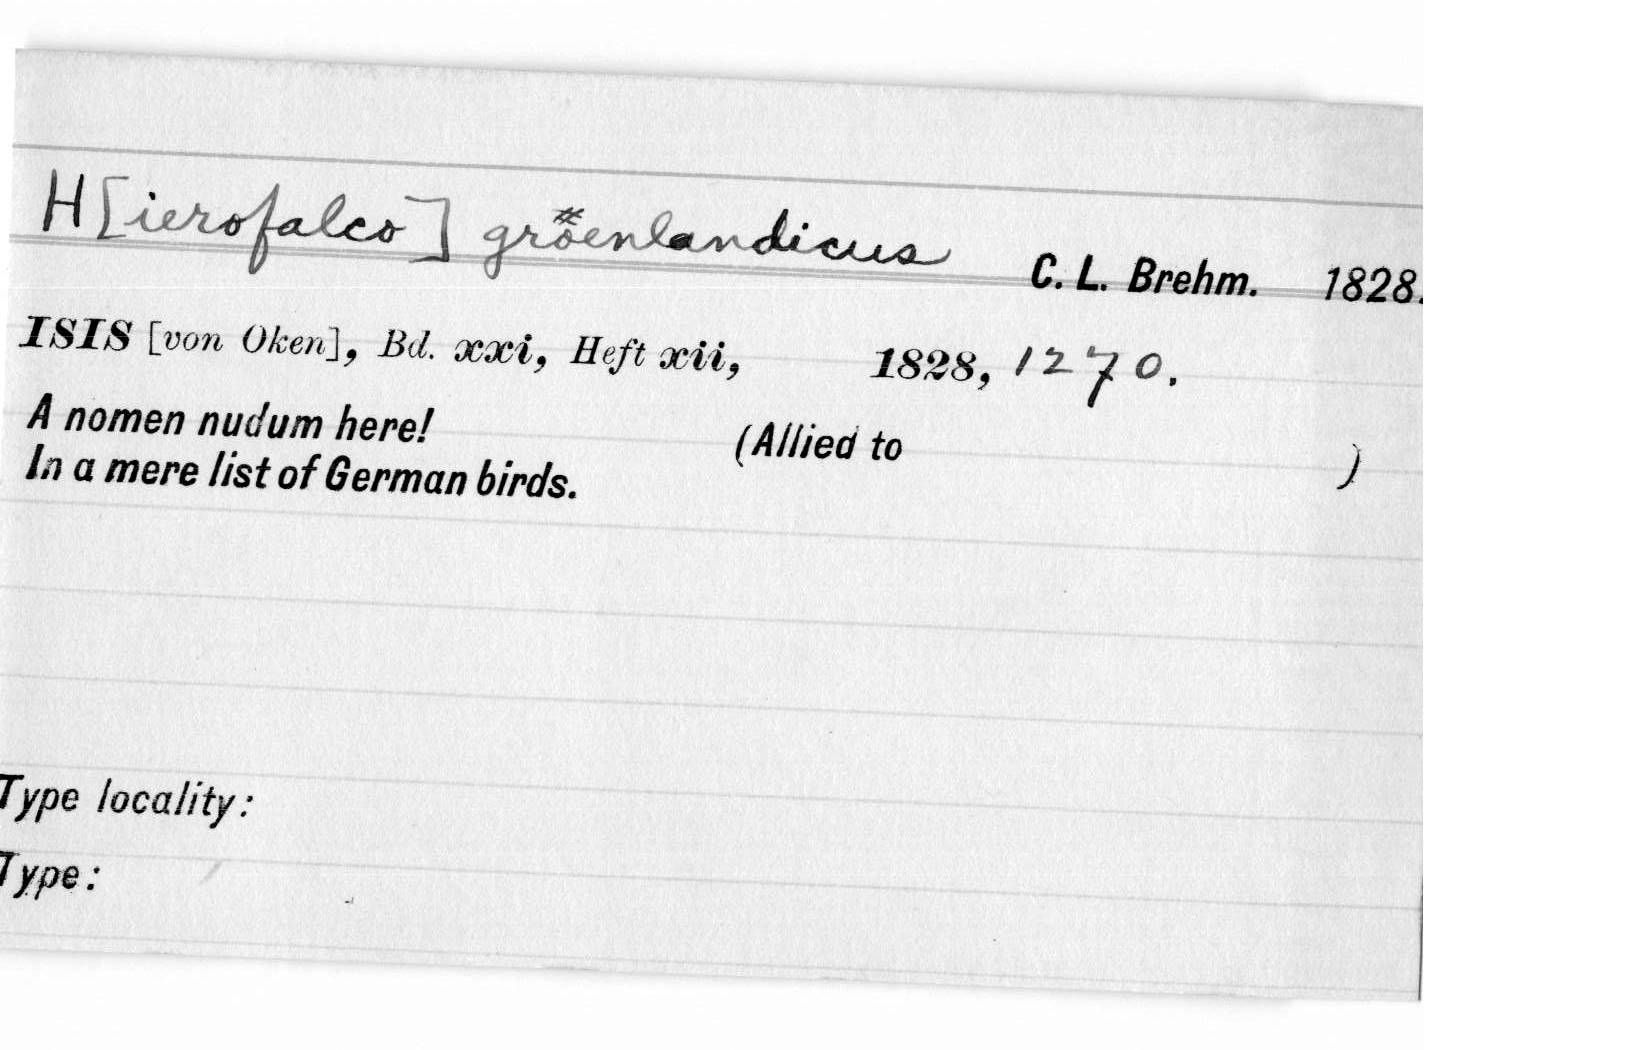 H[ierofalco] gröenlandicus C. L. Brehm. 1828.
ISIS [von Oken], Bd. xxi, Heft xii, 1828, 1270.
A nomen nudum here! (Allied to )
In a mere list of German birds.
Type locality:
Type: